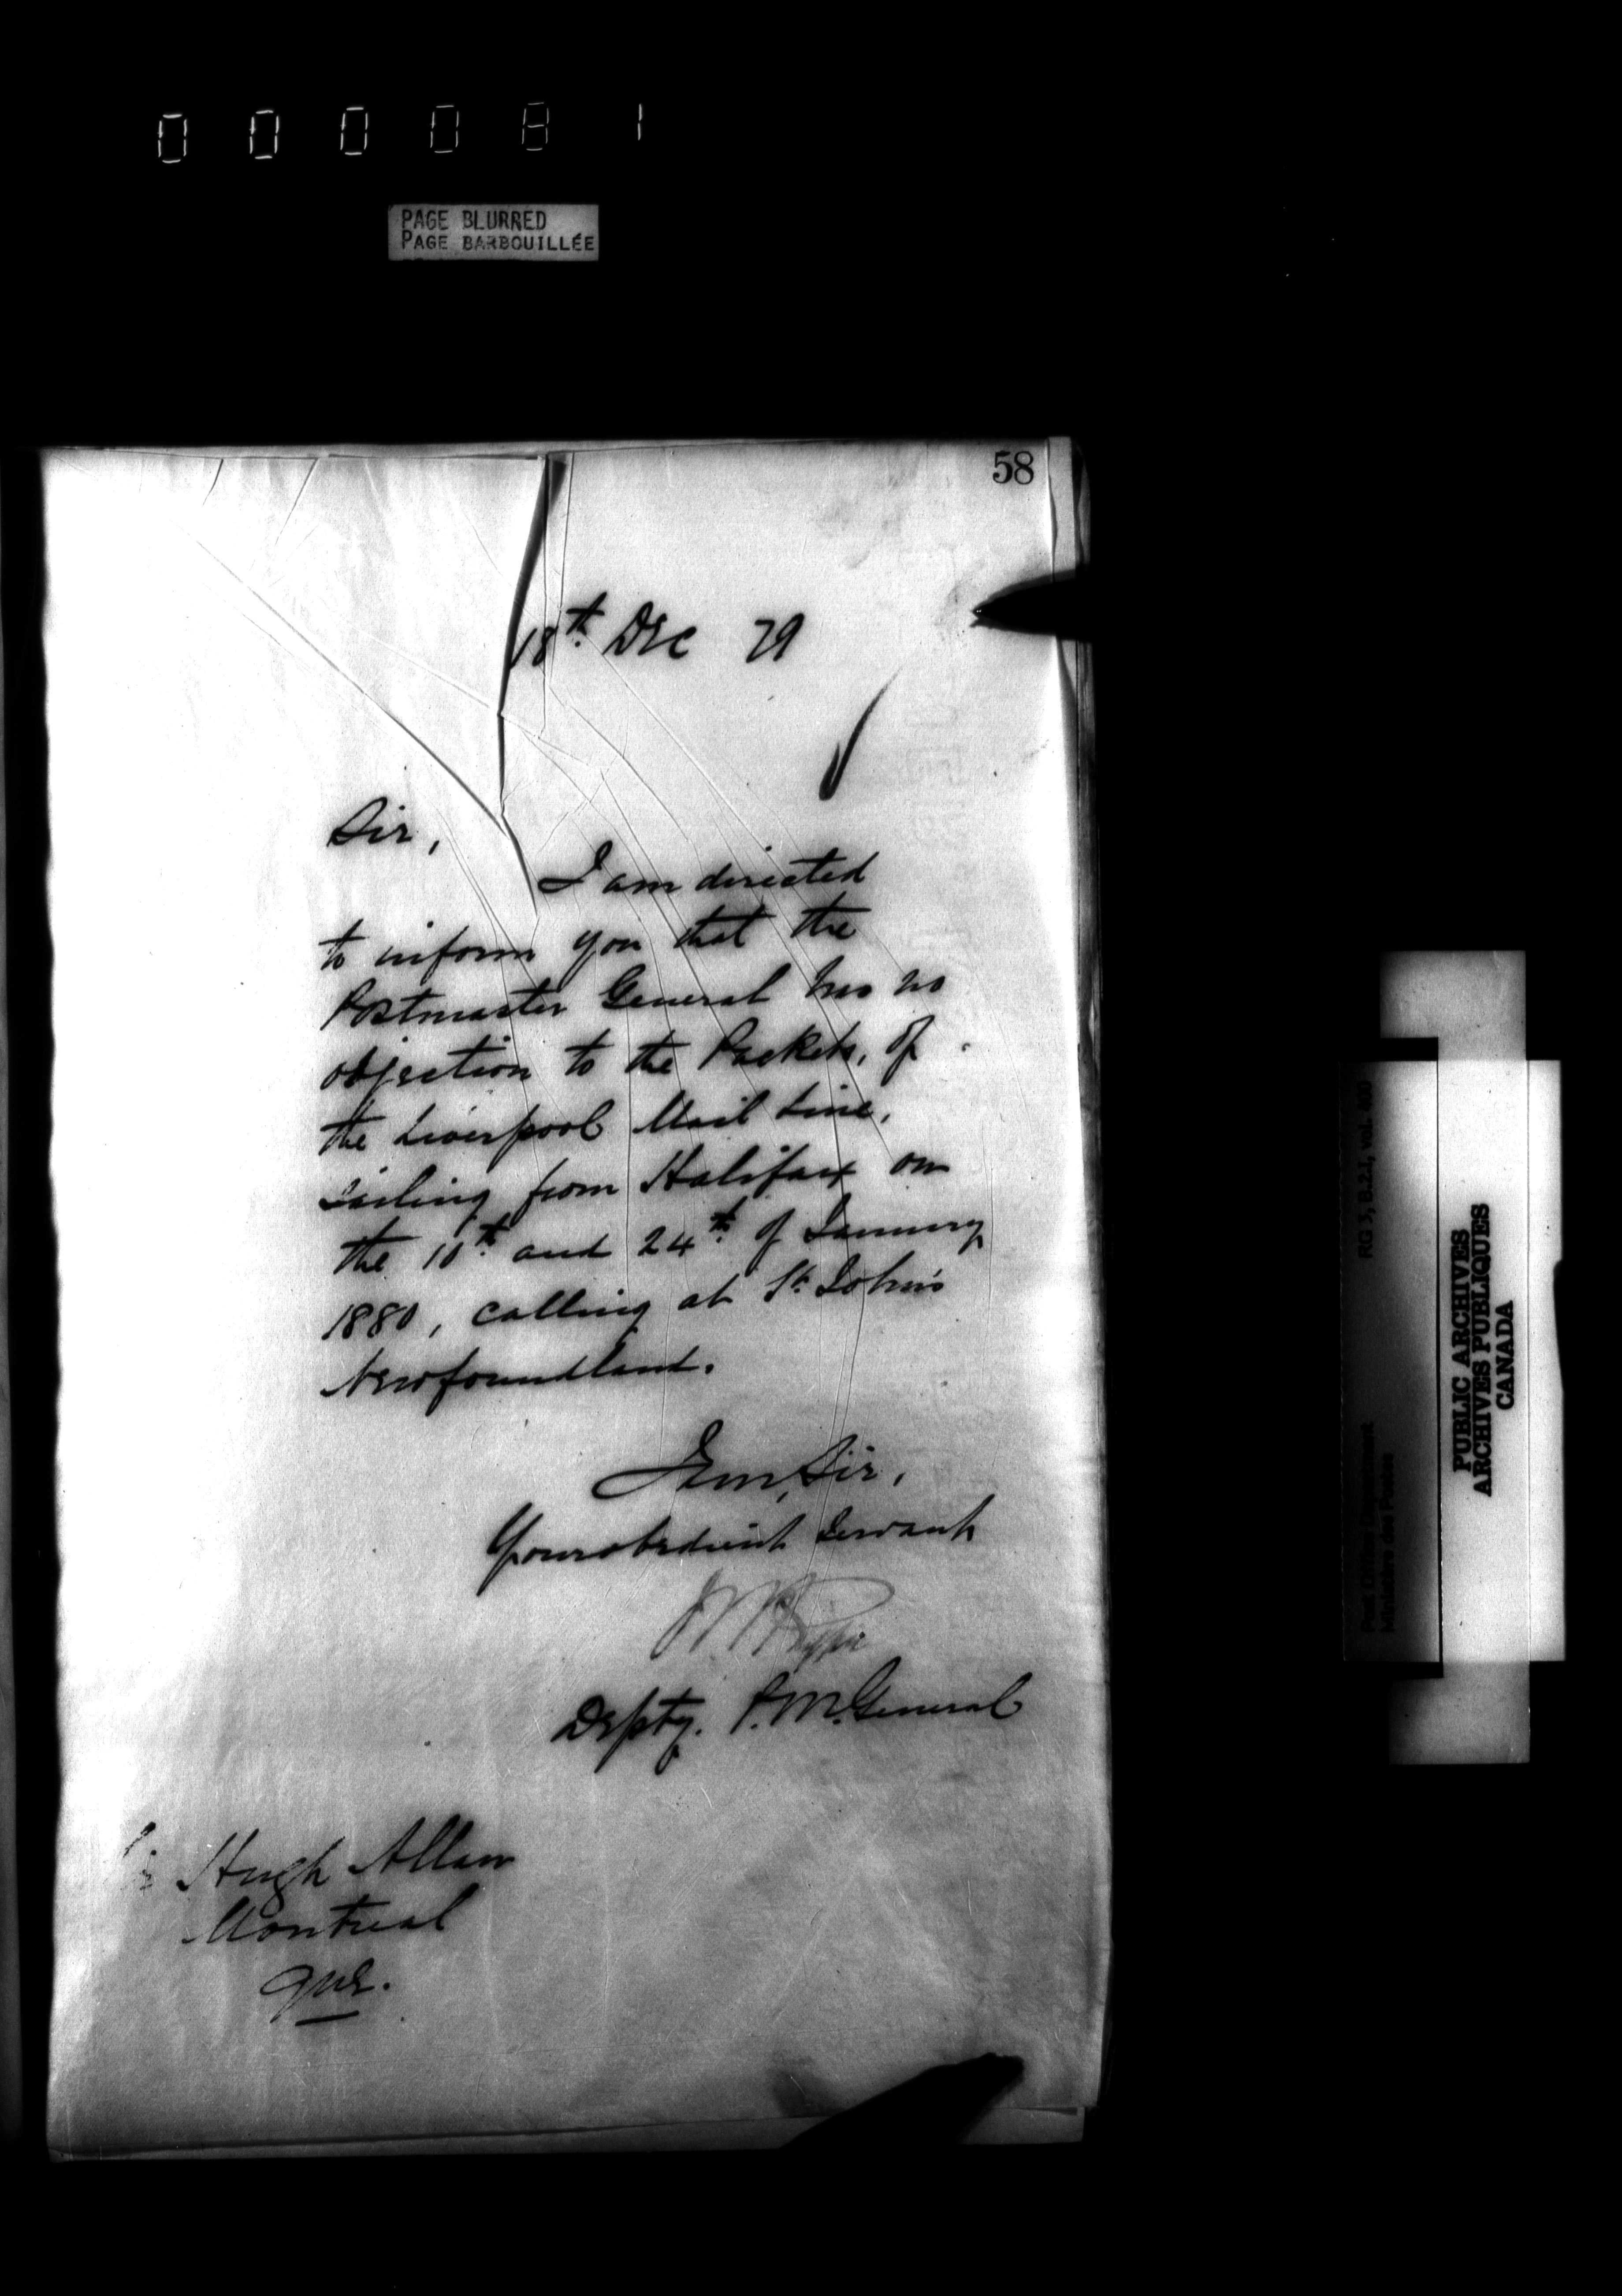 000081
PAGE BLURRED
PAGE BARBOUILLÉE
58
18th Dec 79
Sir,
I am directed
to inform you that the
Postmaster General has no
objection to the Packets, of
the Liverpool Mail Line,
sailing from Halifax on
the 10th and 24th of January
1880, calling at St. John's
Newfoundland.
I am, Sir,
Your obedient Servant
Depty. P. M. General
Sir Hugh Allan
Montreal
Que.
RG 3, B.2.1, vol. 600
Post Office Department
Ministère des Postes
PUBLIC ARCHIVES
ARCHIVES PUBLIQUES
CANADA